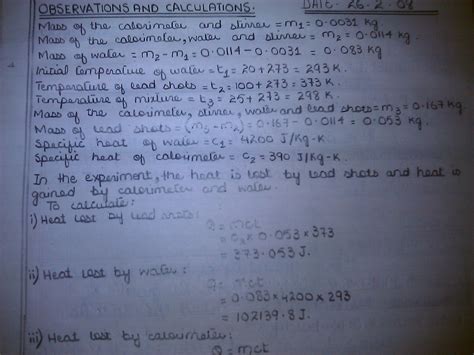 OBSERVATIONS AND CALCULATIONS: DATE- 26-2-08
Mass of the calorimeter and stirrer = m₁ = 0.0031 kg
Mass of the calorimeter, water and stirrer = m₂ = 0.0114 kg
Mass of water = m₂ - m₁ = 0.0114 - 0.0031 = 0.083 kg
Initial temperature of water = t₁ = 20+273 = 293 K.
Temperature of lead shots = t₂ = 100+273 = 373K.
Temperature of mixture = t₃ = 25+273 = 298 K.
Mass of the calorimeter, stirrer, water and lead shots = m₃ = 0.167 kg
Mass of lead shots = (m₃ - m₂) = 0.167 - 0.0114 = 0.053 kg.
Specific heat of water = c₁ = 4200 J/Kg-K
Specific heat of calorimeter = c₂ = 390 J/Kg-K.
In the experiment, the heat is lost by lead shots and heat is
gained by calorimeter and water.
To calculate:
i) Heat lost by lead shots:
Q = mct
= c₃ x 0.053 x 373
= 373.053 J.
ii) Heat lost by water:
Q = mct
= 0.083 x 4200 x 293
= 102139.8 J.
iii) Heat lost by calorimeter:
Q = mct